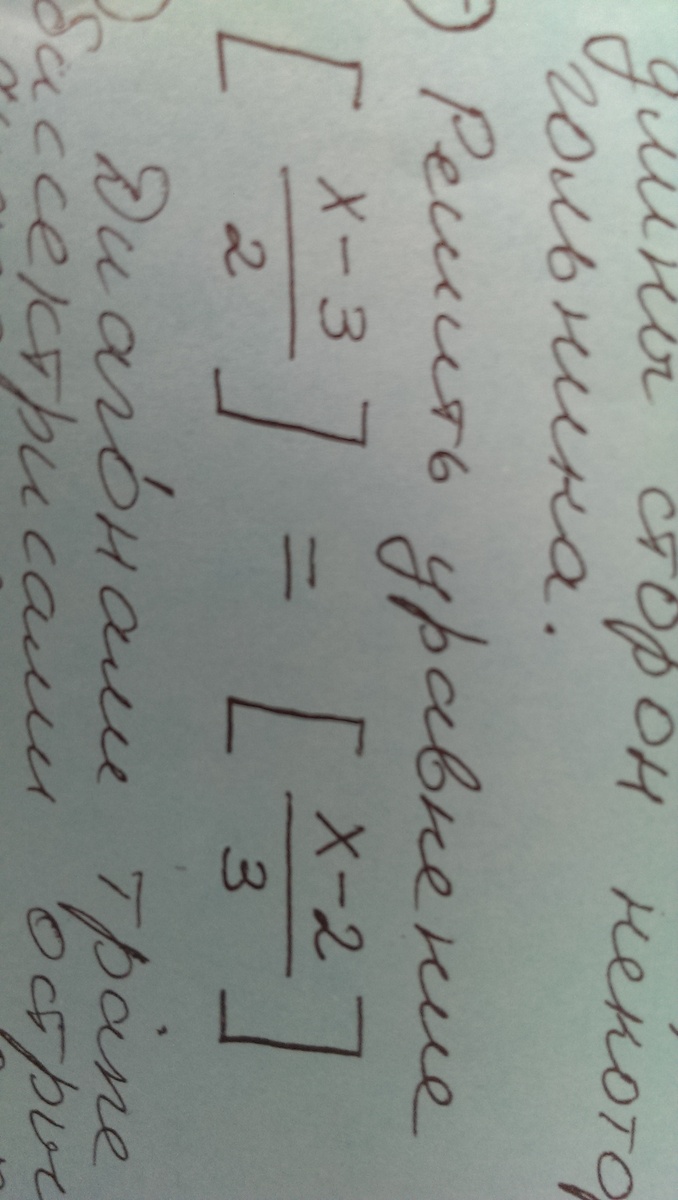 длины сторон некотор
гольника.
Решить уравнение
[ x-3 / 2 ] = [ x-2 / 3 ]
Диагонали трапе
биссектрисами остры